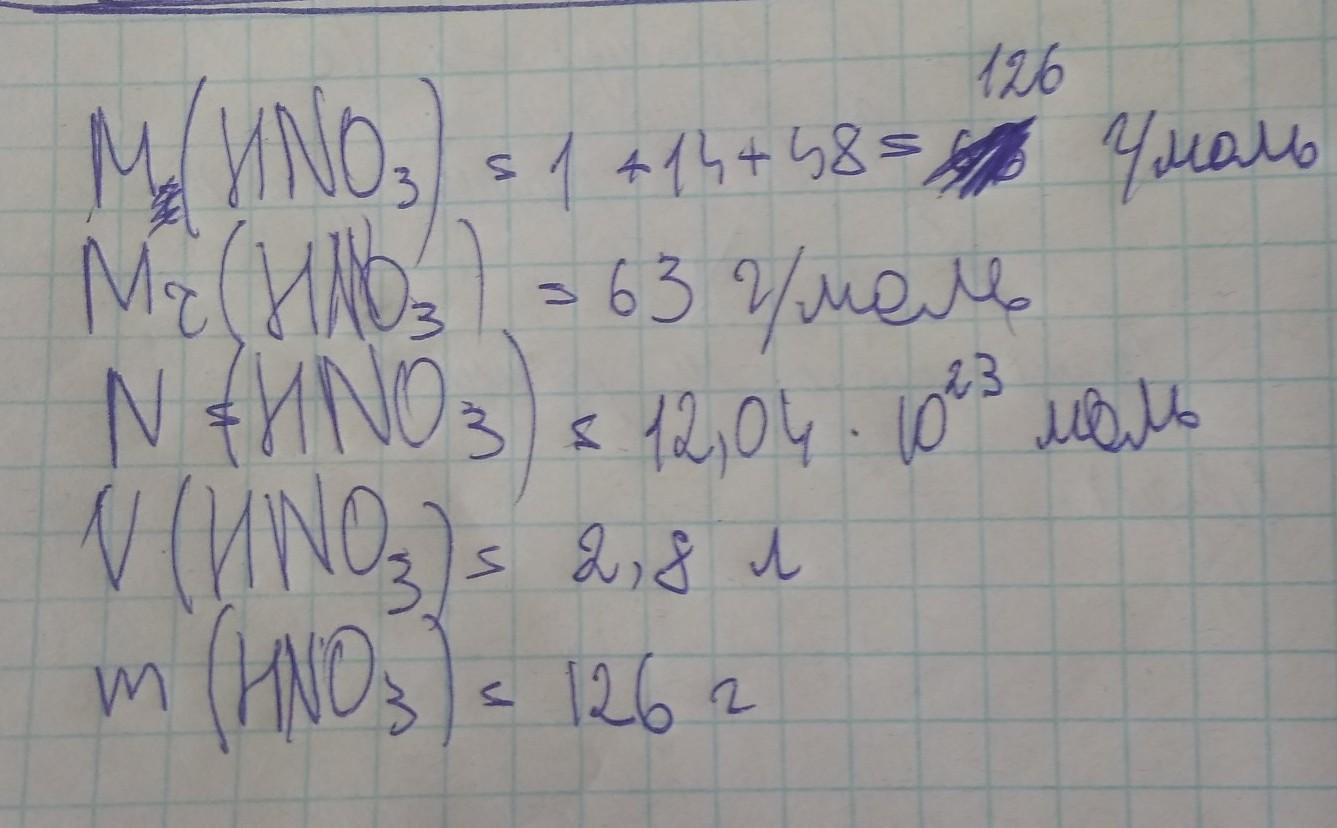 126
M(HNO₃) = 1 + 14 + 48 = г/моль
Mr(HNO₃) = 63 г/моль
N (HNO₃) = 12,04 · 10²³ моль
V(HNO₃) = 2,8 л
m (HNO₃) = 126 г